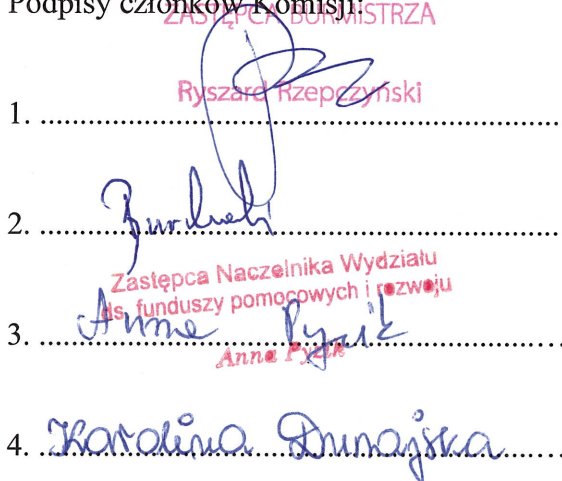 Podpisy członków Komisji:
ZASTĘPCA BURMISTRZA
Ryszard Rzepczyński
1. ....................................................
2. ....................................................
Zastępca Naczelnika Wydziału
ds. funduszy pomocowych i rozwoju
3. Anna Pyzik
Anna Pyzik
4. Karolina Dunajska